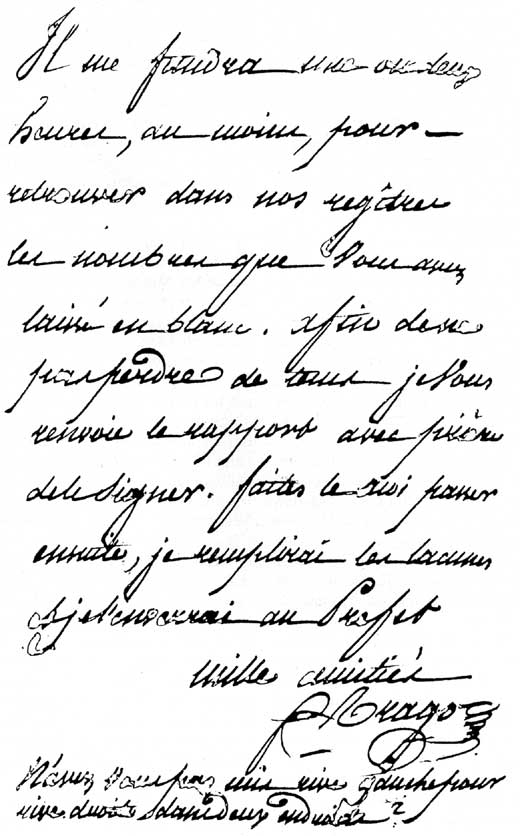 Il me faudra une ou deux
heures, au moins, pour
retrouver dans nos regîtres
les nombres que Vous avez
laissé en blanc. afin de ne
pas perdre de tems je Vous
renvoie le rapport avec prière
de le Signer. faites le moi passer
ensuite, je remplirai les lacunes
et je l'enverrai au Préfet
mille amitiés
f. Arago
N'avez Vous pas mis rive gauche pour
rive droite dans deux endroits ?